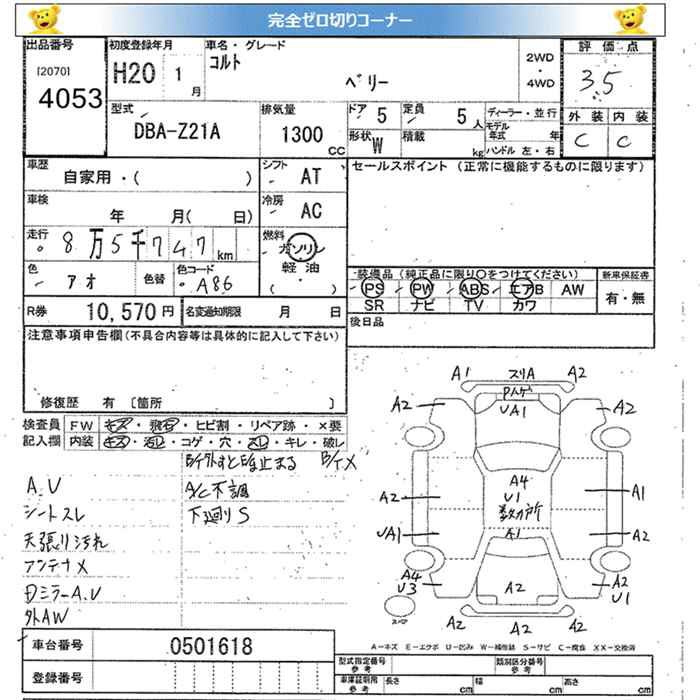 完全ゼロ切りコーナー
出品番号 初度登録年月 車名・グレード 2WD ・ 4WD 評価点
[2070] 4053 H20 1月 コルト ベリー 3.5
型式 DBA-Z21A 排気量 1300 CC ドア 5 定員 5人 ディーラー・並行 外装 内装
形状 W 積載 kg モデル年式 年 ハンドル 左・右 C C
車歴 自家用・( ) シフト AT セールスポイント (正常に機能するものに限ります)
車検 年 月( 日) 冷房 AC
走行 8万5千747km 燃料 ガソリン 軽油 ( ・ )
色 アオ 色替 色コード A86
装備品 (純正品に限り〇をつけてください) 新車保証書
PS PW ABS エアB AW 有・無
SR ナビ TV カワ
R券 10,570円 名変通知期限 月 日
後日品
注意事項申告欄(不具合内容等は具体的に記入して下さい)
修復歴 有 [箇所 ]
検査員 FW キズ・飛石・ヒビ割・リペア跡・×要
記入欄 内装 キズ・汚レ・コゲ・穴・スレ・キレ・破レ
A.U A/C不調
シートスレ 下廻りS
天張り汚れ
アンテナX
ミラーA.U
外AW
A1 スリA A2
A2 UA1 A2
A2 A4 U1 数カ所 A1
UA1 A1 A2
A4 U3 A2 A2 U1
A2 A2 A2
スペア
A-キズ E-エクボ U-凹み W-補修跡 S-サビ C-腐食 XX-交換済
車台番号 0501618
登録番号
型式指定番号 参考 類別区分番号 参考
車庫証明用 参考 長さ cm 幅 cm 高さ cm